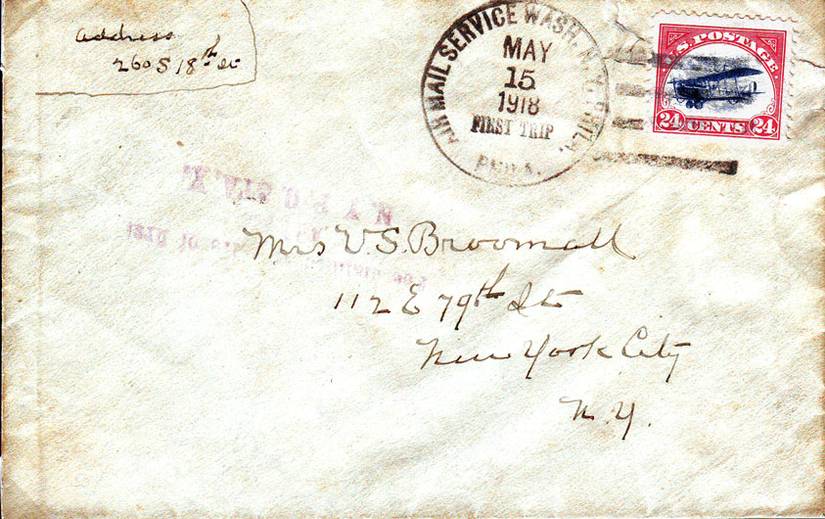 address
260 S 18th St
AIR MAIL SERVICE WASH. N.Y. PHILA.
MAY
15
1918
FIRST TRIP
PHILA.
U.S. POSTAGE
24 CENTS 24
N. Y. P. O.
Mrs V. S. Broomall
112 E 79th St
New York City
N. Y.